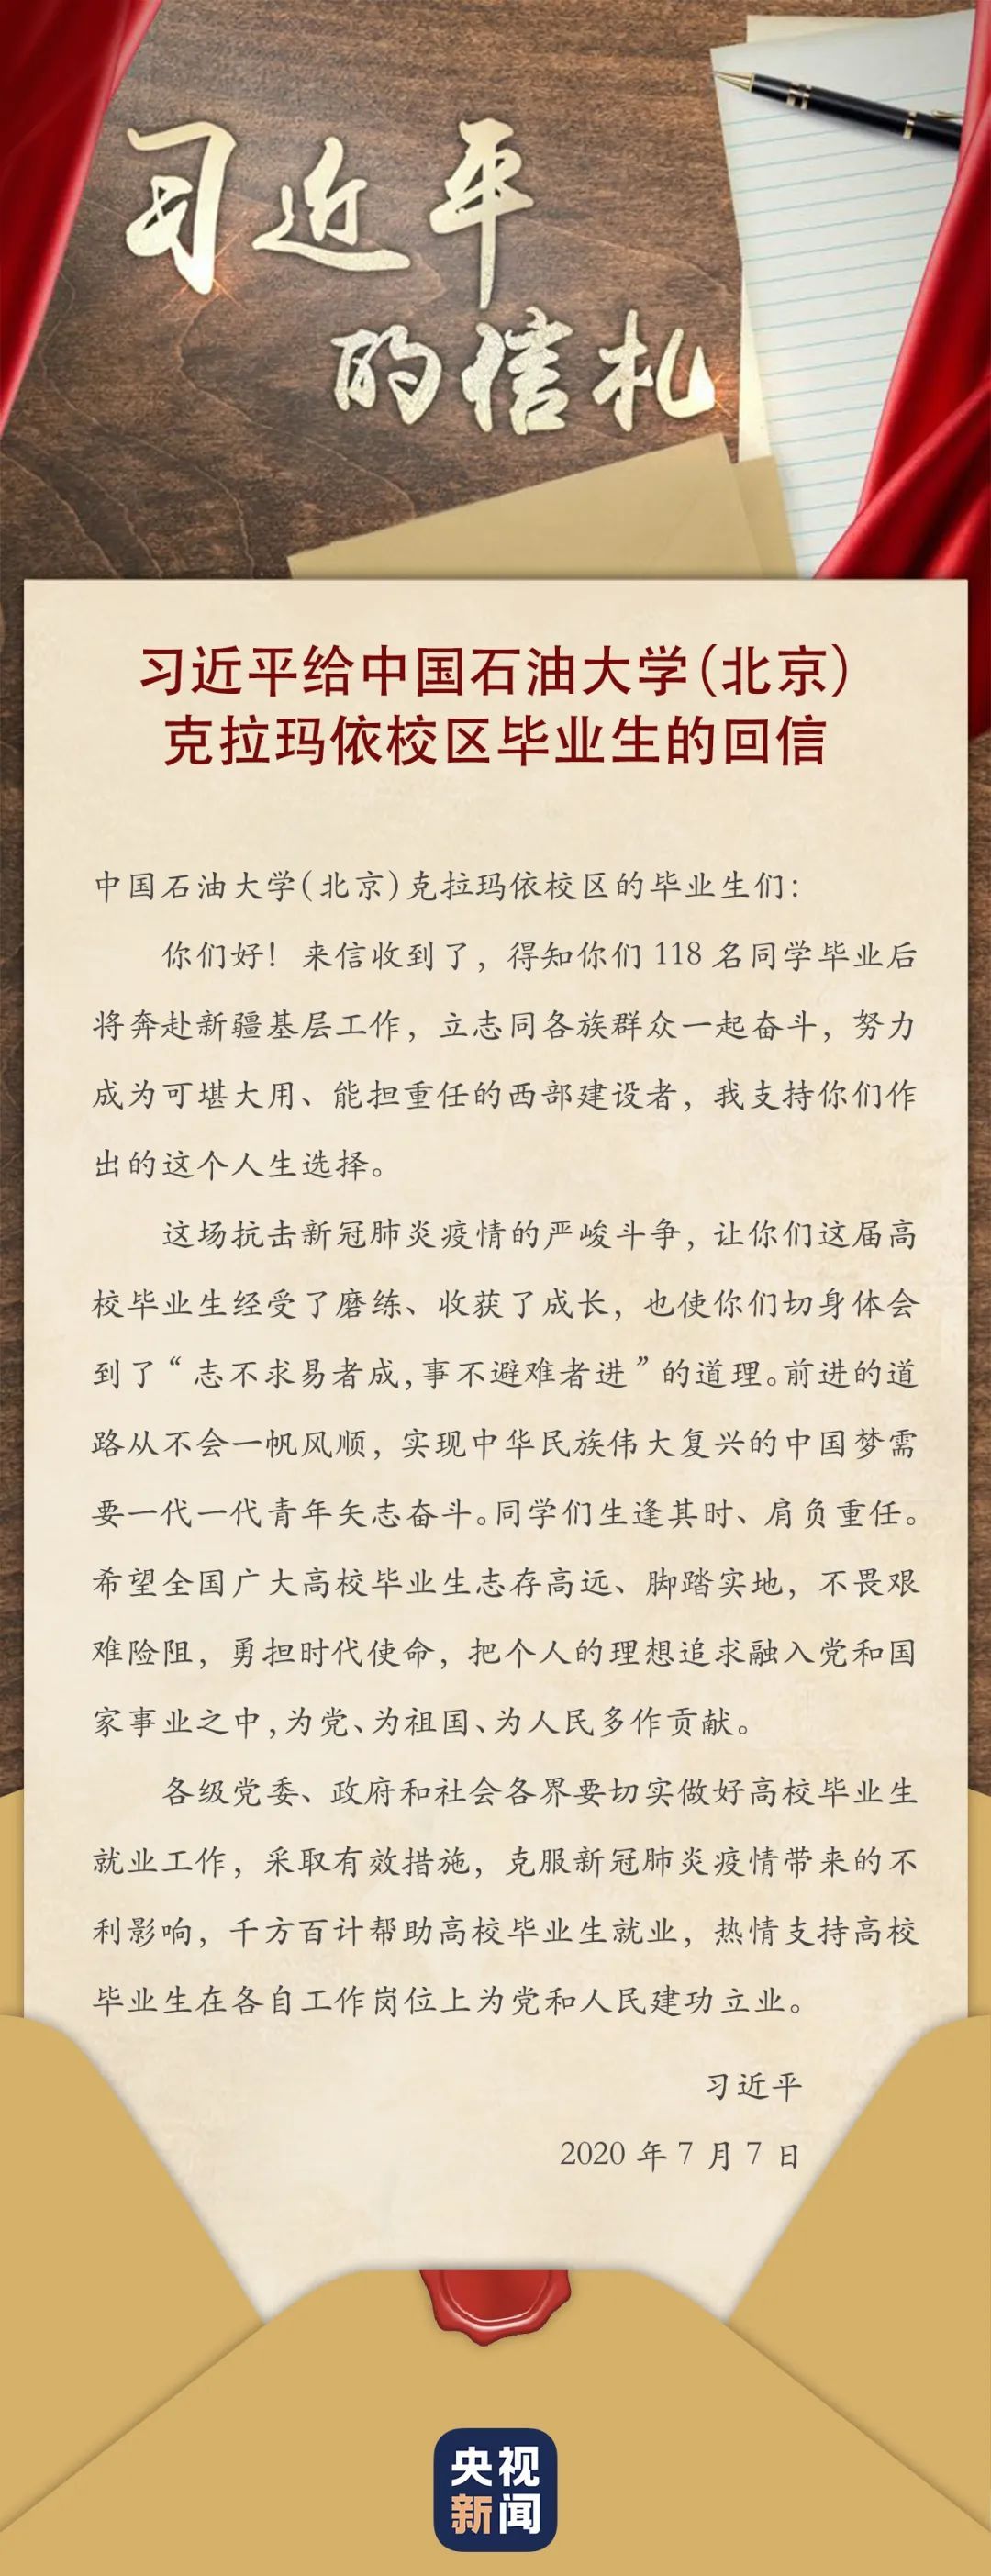 习近平
的信札
习近平给中国石油大学(北京)
克拉玛依校区毕业生的回信
中国石油大学(北京)克拉玛依校区的毕业生们：
你们好！来信收到了，得知你们118名同学毕业后
将奔赴新疆基层工作，立志同各族群众一起奋斗，努力
成为可堪大用、能担重任的西部建设者，我支持你们作
出的这个人生选择。
这场抗击新冠肺炎疫情的严峻斗争，让你们这届高
校毕业生经受了磨练、收获了成长，也使你们切身体会
到了“志不求易者成,事不避难者进”的道理。前进的道
路从不会一帆风顺，实现中华民族伟大复兴的中国梦需
要一代一代青年矢志奋斗。同学们生逢其时、肩负重任。
希望全国广大高校毕业生志存高远、脚踏实地，不畏艰
难险阻，勇担时代使命，把个人的理想追求融入党和国
家事业之中,为党、为祖国、为人民多作贡献。
各级党委、政府和社会各界要切实做好高校毕业生
就业工作，采取有效措施，克服新冠肺炎疫情带来的不
利影响，千方百计帮助高校毕业生就业，热情支持高校
毕业生在各自工作岗位上为党和人民建功立业。
习近平
2020年7月7日
央视
新闻